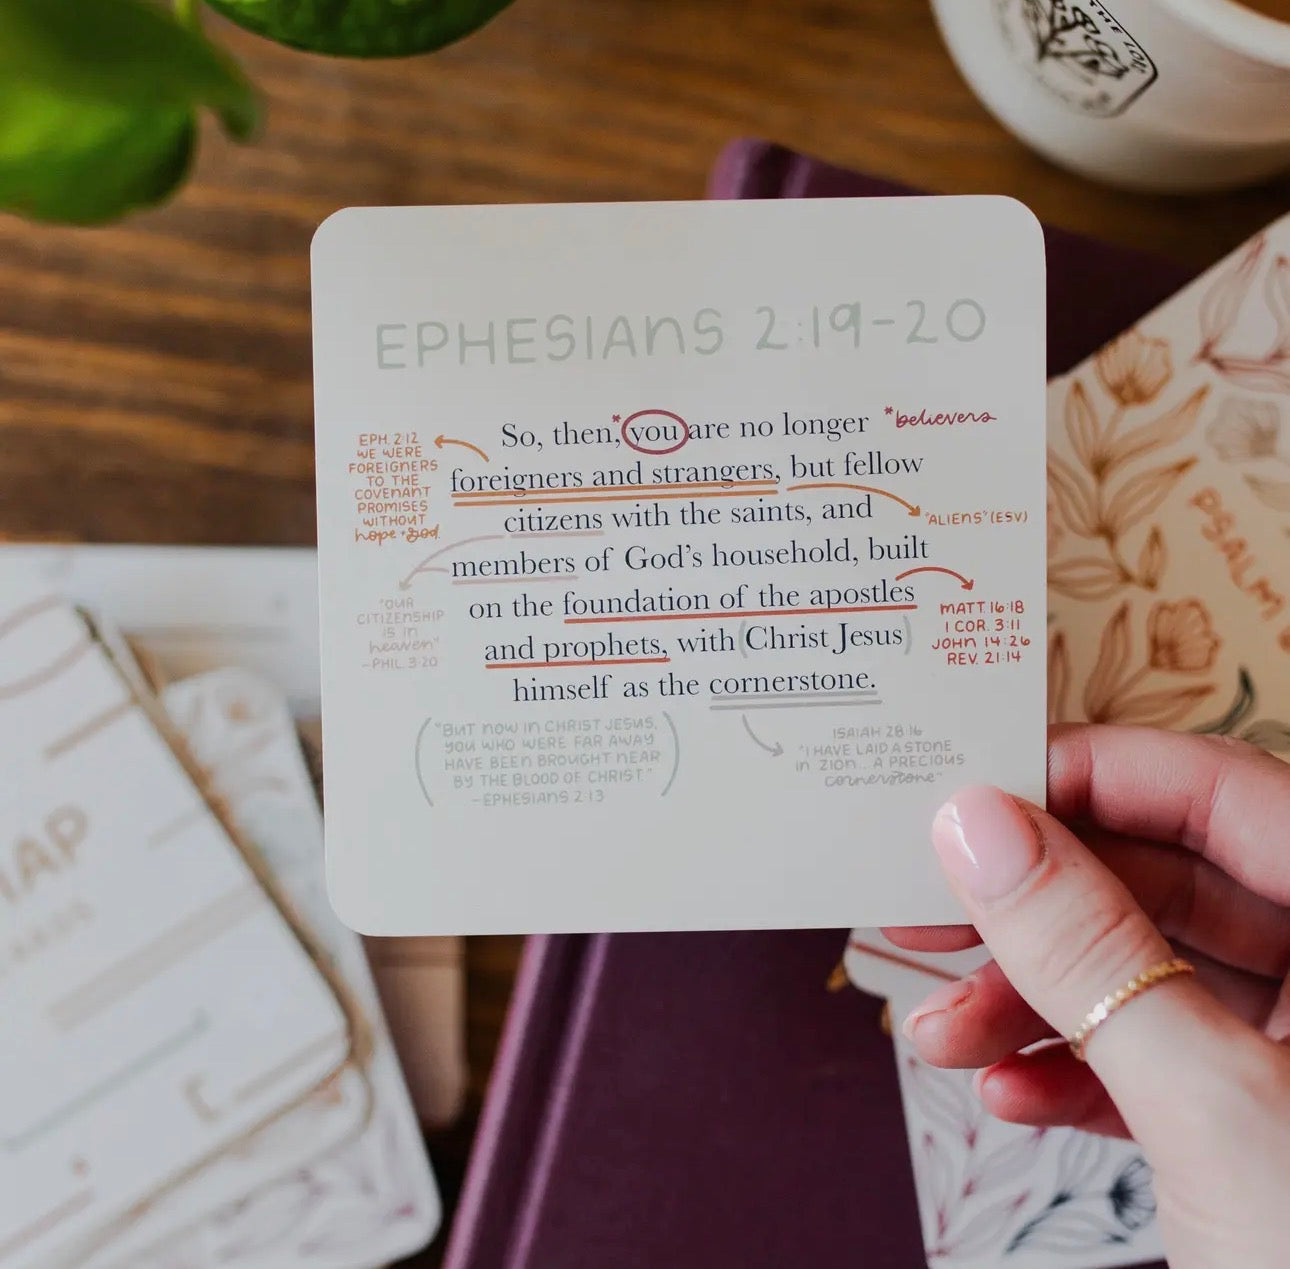 THE LOV
EPHESIANS 2:19-20
So, then,* you are no longer *believers
foreigners and strangers, but fellow
citizens with the saints, and
members of God's household, built
on the foundation of the apostles
and prophets, with (Christ Jesus)
himself as the cornerstone.
EPH. 2:12
WE WERE
FOREIGNERS
TO THE
COVENANT
PROMISES
WITHOUT
hope + God.
"ALIENS" (ESV)
"OUR
CITIZENSHIP
IS IN
heaven"
-PHIL. 3:20
MATT. 16:18
1 COR. 3:11
JOHN 14:26
REV. 21:14
("BUT NOW IN CHRIST JESUS,
YOU WHO WERE FAR AWAY
HAVE BEEN BROUGHT NEAR
BY THE BLOOD OF CHRIST."
-EPHESIANS 2:13)
ISAIAH 28:16
"I HAVE LAID A STONE
IN ZION... A PRECIOUS
cornerstone"
PSALM